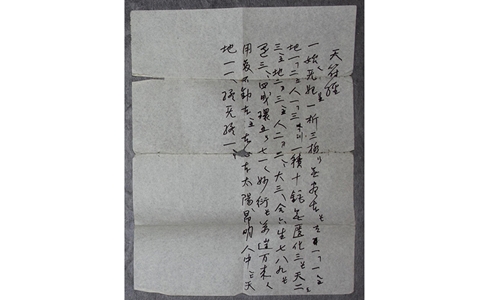 天符經
一始无始一析三極无盡本天一一
地一二人一三一積十鉅无匱化三天二
三地二三人二三大三合六生七八九
運三四成環五七一妙衍萬往万來
用变不動本本太陽昂明人中天
地一一終无終一